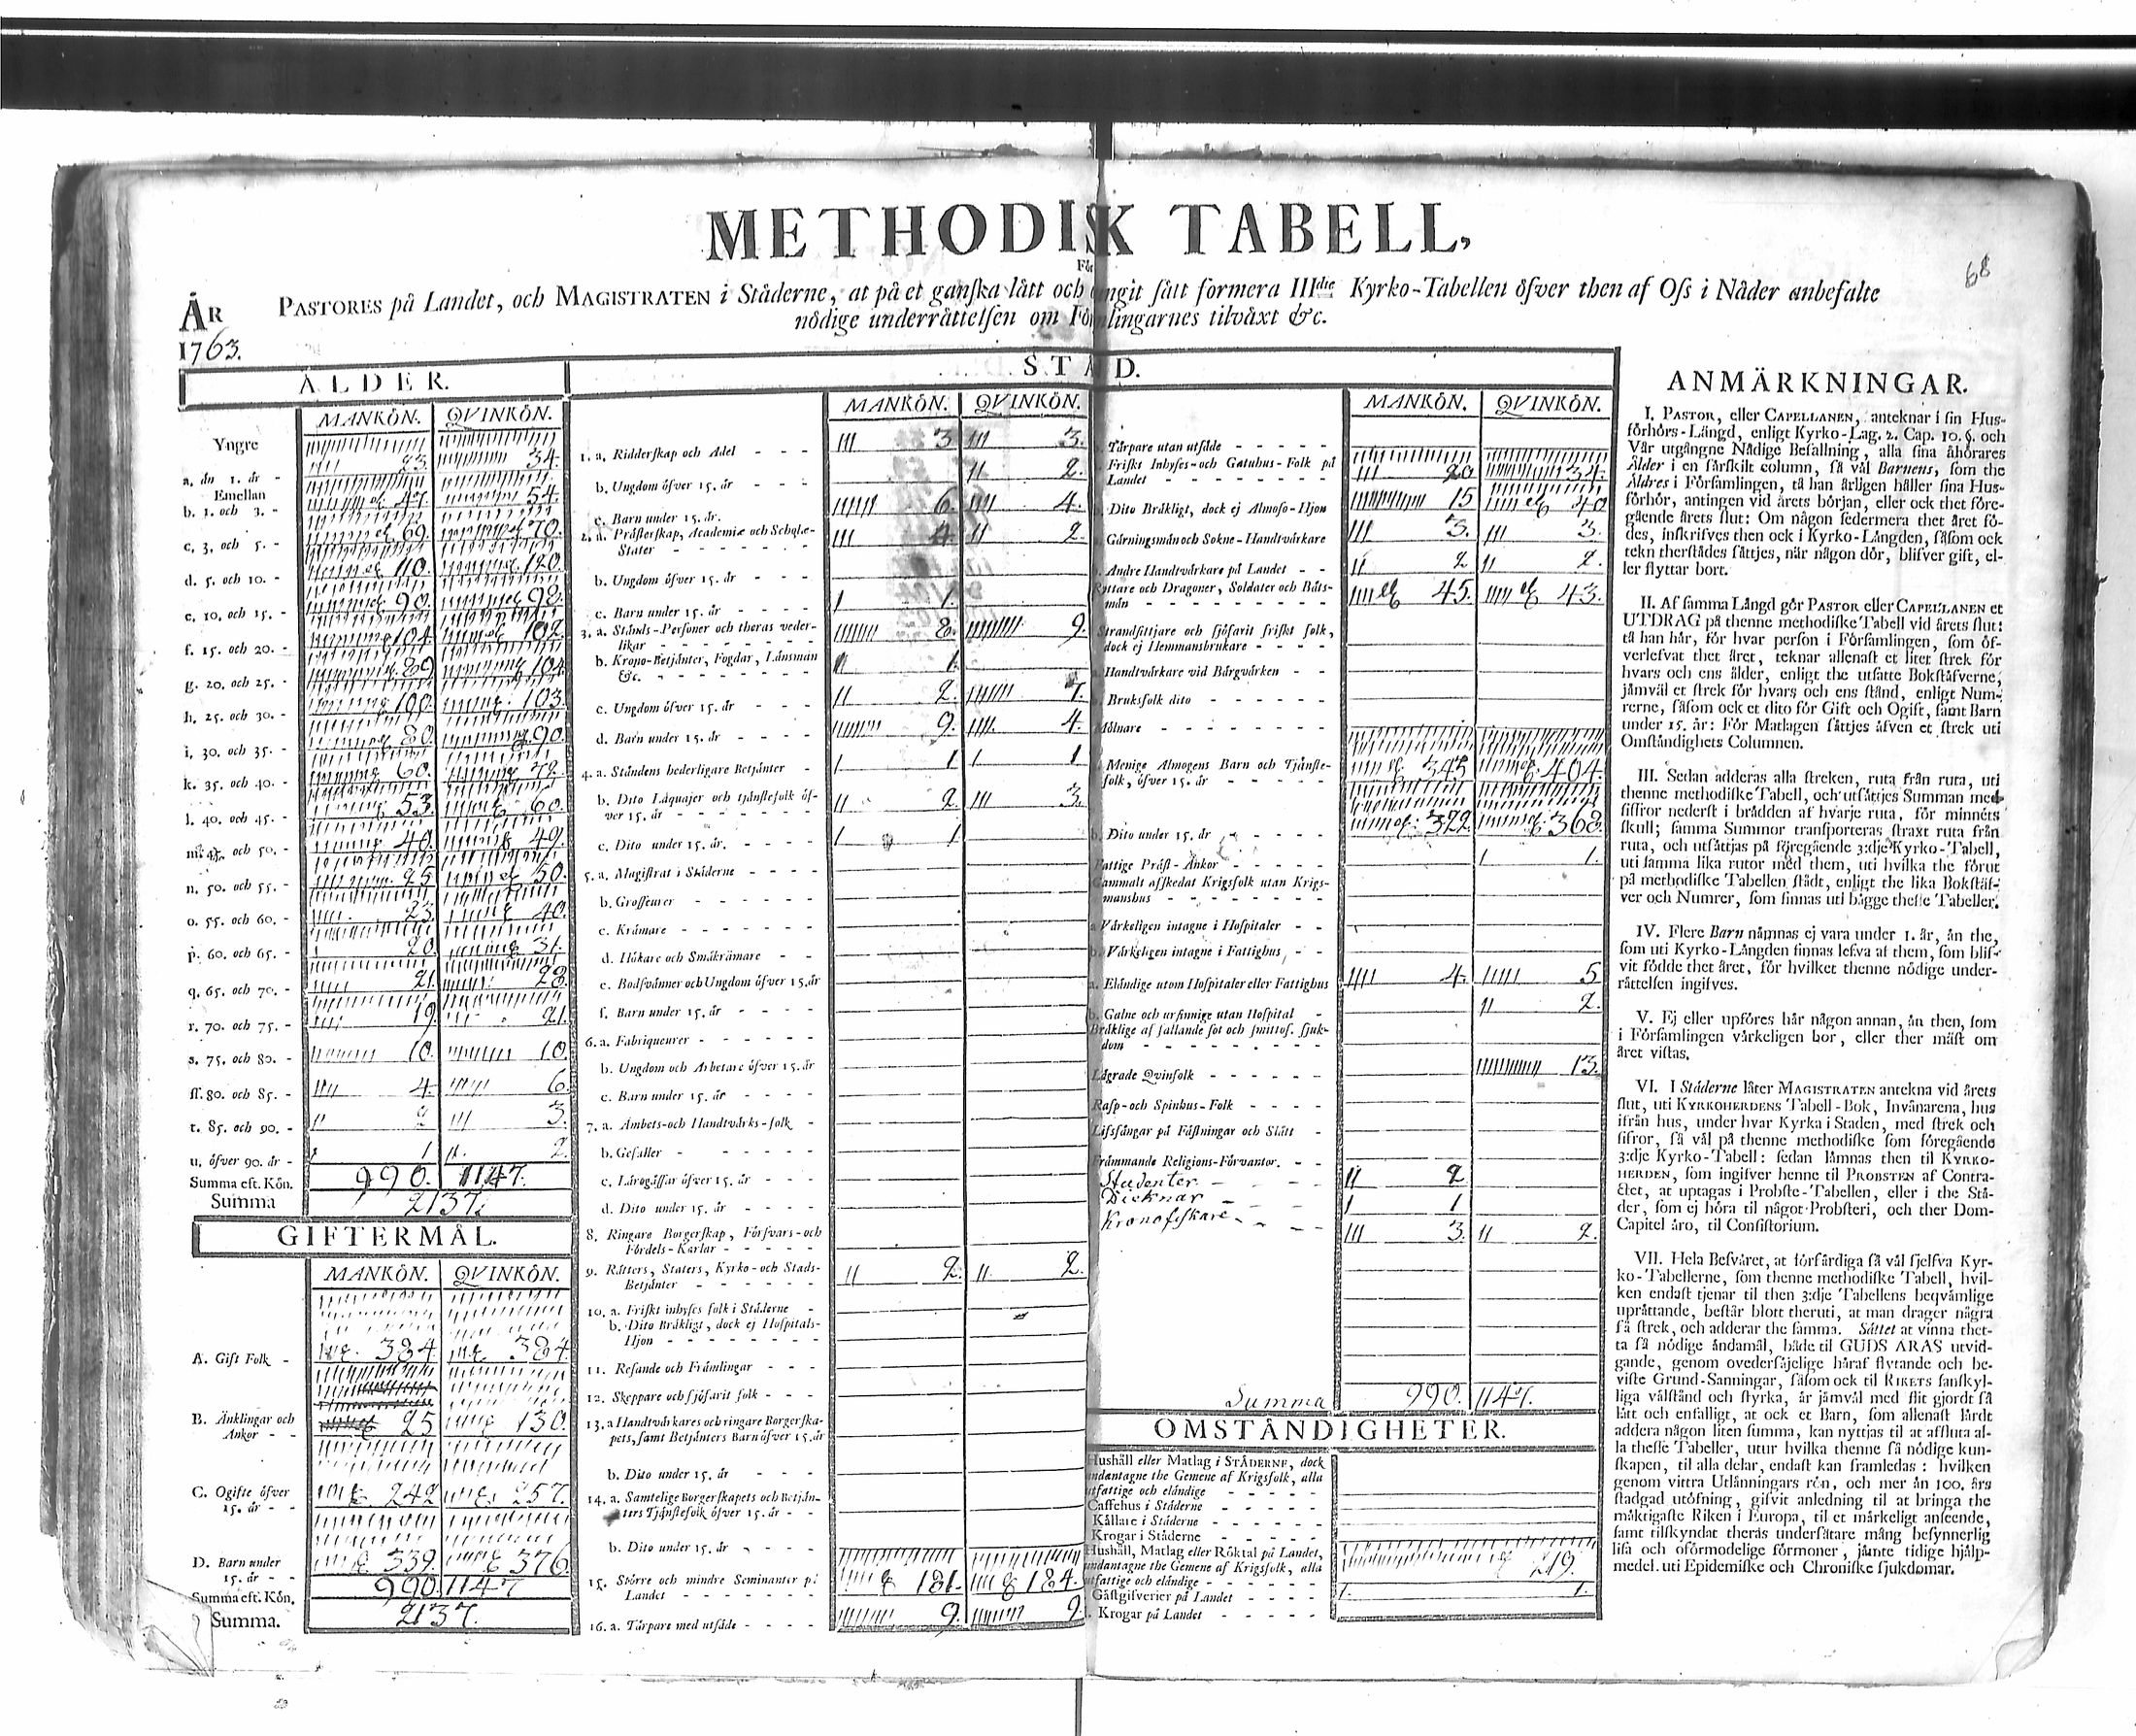 METHODISK TABELL,
För
68
ÅR
1763.
PASTORES på Landet, och MAGISTRATEN i Städerne, at på et ganska lätt och ångit sätt formera IIIdie Kyrko-Tabellen öfver then af Oss i Nåder anbefalte
nödige underrättelsen om Församlingarnes tilväxt &c.
ÅLDER.
MANKÖN. QVINKÖN.
Yngre
a. än 1. år - 23. 34.
Emellan
b. 1. och 3. - 47. 54.
c. 3. och 5. - 69. 70.
d. 5. och 10. - 110. 120.
e. 10. och 15. - 90. 98.
f. 15. och 20. - 104. 102.
g. 20. och 25. - 89. 104.
h. 25. och 30. - 100. 103.
i. 30. och 35. - 80. 90.
k. 35. och 40. - 60. 72.
l. 40. och 45. - 53. 60.
m. 45. och 50. - 40. 49.
n. 50. och 55. - 25. 50.
o. 55. och 60. - 23. 40.
p. 60. och 65. - 20. 31.
q. 65. och 70. - 21. 28.
r. 70. och 75. - 19. 21.
s. 75. och 80. - 10. 10.
ss. 80. och 85. - 4. 6.
t. 85. och 90. - 2 3.
u. öfver 90. år - 1 2.
Summa eft. Kön. 990. 1147.
Summa 2137.
GIFTERMÅL.
MANKÖN. QVINKÖN.
A. Gift Folk - 384. 384.
B. Änklingar och
Änkor - - 25 130.
C. Ogifte öfver
15. år - - 242 257.
D. Barn under
15. år - - 339. 376
Summa eft. Kön. 990. 1147
Summa. 2137.
STÅD.
MANKÖN. QVINKÖN.
1. a. Ridderskap och Adel - - - 3 3.
b. Ungdom öfver 15. år - - - 2.
c. Barn under 15. år. 6. 4.
2. a. Prästerskap, Academiæ och Scholæ-
Stater - - - - - - 4. 2.
b. Ungdom öfver 15. år - - -
c. Barn under 15. år - - - - 1.
3. a. Stånds-Personer och theras veder-
likar - - - - - - - 8. 9.
b. Krono-Betjänter, Fogdar, Länsmän
&c. - - - - - - - 1.
c. Ungdom öfver 15. år - - - 2. 7.
d. Barn under 15. år - - - - 9. 4.
4. a. Ståndens hederligare Betjänter - 1 1.
b. Dito Laquajer och tjänstefolk öf-
ver 15. år - - - - - - 2. 3.
c. Dito under 15. år. - - - - 1.
5. a. Magistrat i Städerne - - - -
b. Grosseurer - - - - - -
c. Krämare - - - - - - -
d. Hökare och Småkrämare - -
e. Bodsvänner och Ungdom öfver 15. år
f. Barn under 15. år - - - -
6. a. Fabriqueurer - - - - - -
b. Ungdom och Arbetare öfver 15. år
c. Barn under 15. år - - - -
7. a. Ämbets-och Handtvärks-folk -
b. Gesäller - - - - - - -
c. Lärogåssar öfver 15. år - - -
d. Dito under 15. år - - - -
8. Ringare Borgerskap, Försvars-och
Fördels-Karlar - - - - -
9. Rätters, Staters, Kyrko-och Stads-
Betjänter - - - - - - 2. 2.
10. a. Friskt inhyses folk i Städerne -
b. Dito Bräkligt, dock ej Hospitals-
Hjon - - - - - - - -
11. Resande och Främlingar - - -
12. Skeppare och sjöfarit folk - - -
13. a Handtvärkares och ringare Borgerska-
pets, samt Betjänters Barn öfver 15. år
b. Dito under 15. år - - -
14. a. Samtelige Borgerskapets och Betjän-
ters Tjänstefolk öfver 15. år - -
b. Dito under 15. år - - - -
15. Större och mindre Seminanter på
Landet - - - - - - - 181. 184.
16. a. Tårpare med utsäde - - - - 9. 9.
MANKÖN. QVINKÖN.
Tårpare utan utsäde - - - - -
Friskt Inhyses-och Gatuhus-Folk på
Landet - - - - - - - 20 34.
Dito Bräkligt, dock ej Almoso-Hjon 15 40
Gärningsmän och Sokne-Handtvärkare 3. 3.
Andre Handtvärkare på Landet - - 2 2.
Ryttare och Dragoner, Soldater och Båts-
män - - - - - - - - 45. 43.
Strandsittjare och sjöfarit friskt folk,
dock ej Hemmansbrukare - - - -
Handtvärkare vid Bärgvärken - -
Bruksfolk dito - - - - - -
Mölnare - - - - - - - -
Menige Almogens Barn och Tjänste-
folk, öfver 15. år - - - - - 345 404.
Dito under 15. år - - - - - 372. 368.
Fattige Präst-Änkor - - - - - 1.
Gammalt afskedat Krigsfolk utan Krigs-
manshus - - - - - - -
Värkeligen intagne i Hospitaler - -
Värkeligen intagne i Fattighus, - -
Eländige utom Hospitaler eller Fattighus 4. 5
Galne och ursinnige utan Hospital - 2.
Bräklige af fallande sot och smittos. sjuk-
dom - - - - - - - -
Lägrade Qvinfolk - - - - - - 13.
Rasp-och Spinhus-Folk - - - -
Lifsfångar på Fästningar och Slått -
Främmande Religions-Förvantor. - -
Studenter - - - 2
Dieknar - - - 1
Kronofiskare - - - 3. 2.
Summa 990. 1147.
OMSTÄNDIGHETER.
Hushåll eller Matlag i STÄDERNE, dock
undantagne the Gemene af Krigsfolk, alla
utfattige och eländige - - - - -
Caffehus i Städerne - - - - -
Källare i Städerne - - - - - -
Krogar i Städerne - - - - -
Hushåll, Matlag eller Röktal på Landet,
undantagne the Gemene af Krigsfolk, alla
utfattige och eländige - - - - - - 219.
Gästgifverier på Landet - - - - 1. 1.
Krogar på Landet - - - - -
ANMÄRKNINGAR.
I. PASTOR, eller CAPELLANEN, anteknar i sin Hus-
förhörs-Längd, enligt Kyrko-Lag. 2. Cap. 10. §. och
Vår utgångne Nådige Befallning, alla sina åhörares
Ålder i en särskilt column, så väl Barnens, som the
Äldres i Församlingen, tå han årligen håller sina Hus-
förhör, antingen vid årets början, eller ock thet före-
gående årets slut: Om någon sedermera thet året fö-
des, inskrifves then ock i Kyrko-Längden, såsom ock
tekn therstädes sättjes, när någon dör, blifver gift, el-
ler flyttar bort.
II. Af samma Längd gör PASTOR eller CAPELLANEN et
UTDRAG på thenne methodiske Tabell vid årets slut:
tå han här, för hvar person i Församlingen, som öf-
verlefvat thet året, teknar allenast et litet strek för
hvars och ens ålder, enligt the utsatte Bokstäfverne,
jämväl et strek för hvars och ens stånd, enligt Num-
rerne, såsom ock et dito för Gift och Ogift, samt Barn
under 15. år: För Matlagen sättjes äfven et strek uti
Omständighets Columnen.
III. Sedan adderas alla streken, ruta från ruta, uti
thenne methodiske Tabell, och utsättjes Summan med
siffror nederst i brädden af hvarje ruta, för minnets
skull; samma Summor transporteras straxt ruta från
ruta, och utsättjas på föregående 3:dje Kyrko-Tabell,
uti samma lika rutor med them, uti hvilka the förut
på methodiske Tabellen stådt, enligt the lika Bokstäf-
ver och Numrer, som finnas uti bägge thesse Tabeller.
IV. Flere Barn nämnas ej vara under 1. år, än the,
som uti Kyrko-Längden finnas lefva af them, som blif-
vit födde thet året, för hvilket thenne nödige under-
rättelsen ingifves.
V. Ej eller upföres här någon annan, än then, som
i Församlingen värkeligen bor, eller ther mäst om
året vistas.
VI. I Städerne låter MAGISTRATEN antekna vid årets
slut, uti KYRKOHERDENS Tabell-Bok, Invånarena, hus
ifrån hus, under hvar Kyrka i Staden, med strek och
sifror, så väl på thenne methodiske som föregående
3:dje Kyrko-Tabell: sedan lämnas then til KYRKO-
HERDEN, som ingifver henne til PROBSTEN af Contra-
ctet, at uptagas i Probste-Tabellen, eller i the Stä-
der, som ej höra til något Probsteri, och ther Dom-
Capitel äro, til Consistorium.
VII. Hela Besväret, at förfärdiga så väl sjelfva Kyr-
ko-Tabellerne, som thenne methodiske Tabell, hvil-
ken endast tjenar til then 3:dje Tabellens beqvämlige
uprättande, består blott theruti, at man drager några
få strek, och adderar the samma. Sättet at vinna thet-
ta så nödige ändamål, både til GUDS ÄRAS utvid-
gande, genom ovedersäjelige häraf flytande och be-
viste Grund-Sanningar, såsom ock til RIKETS sanskyl-
liga välstånd och styrka, är jämväl med flit gjordt så
lätt och enfalligt, at ock et Barn, som allenast lärdt
addera någon liten summa, kan nyttjas til at afsluta al-
la thesse Tabeller, utur hvilka thenne så nödige kun-
skapen, til alla delar, endast kan framledas: hvilken
genom vittra Utlänningars rön, och mer än 100. års
stadgad utöfning, gifvit anledning til at bringa the
mäktigaste Riken i Europa, til et märkeligt anseende,
samt tilskyndat theras undersåtare mång besynnerlig
lisa och oförmodelige förmoner, jämte tidige hjälp-
medel. uti Epidemiske och Chroniske sjukdomar.